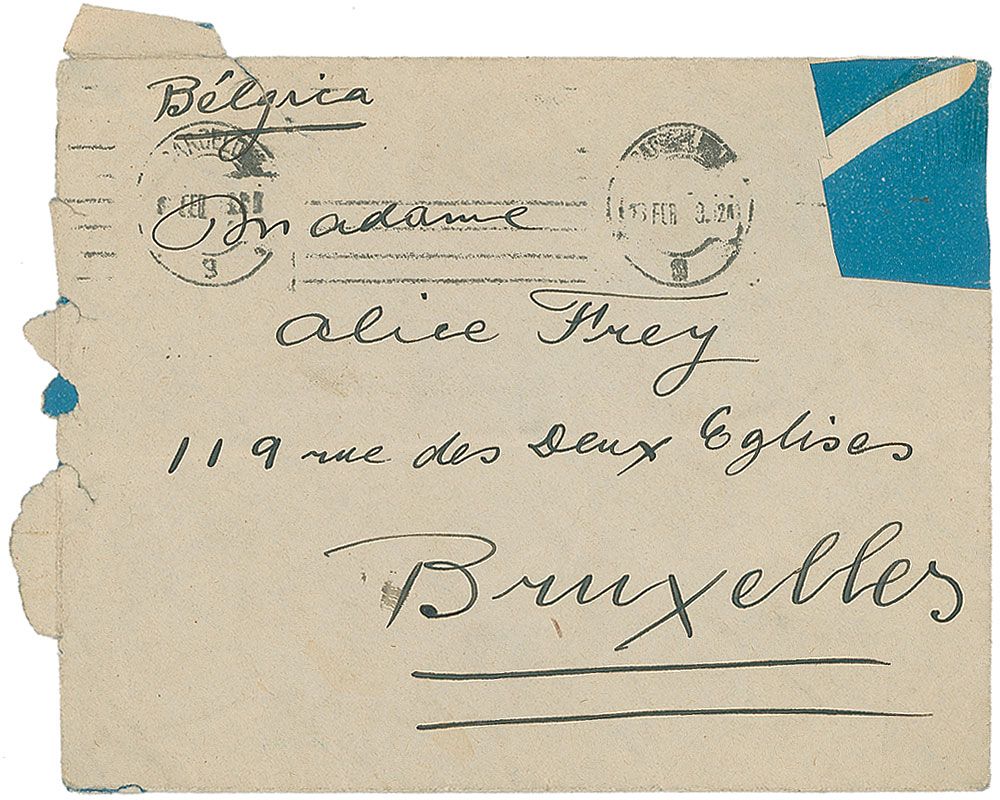 Bélgica
Madame
Alice Frey
119 rue des Deux Eglises
Bruxelles
FEB
FEB